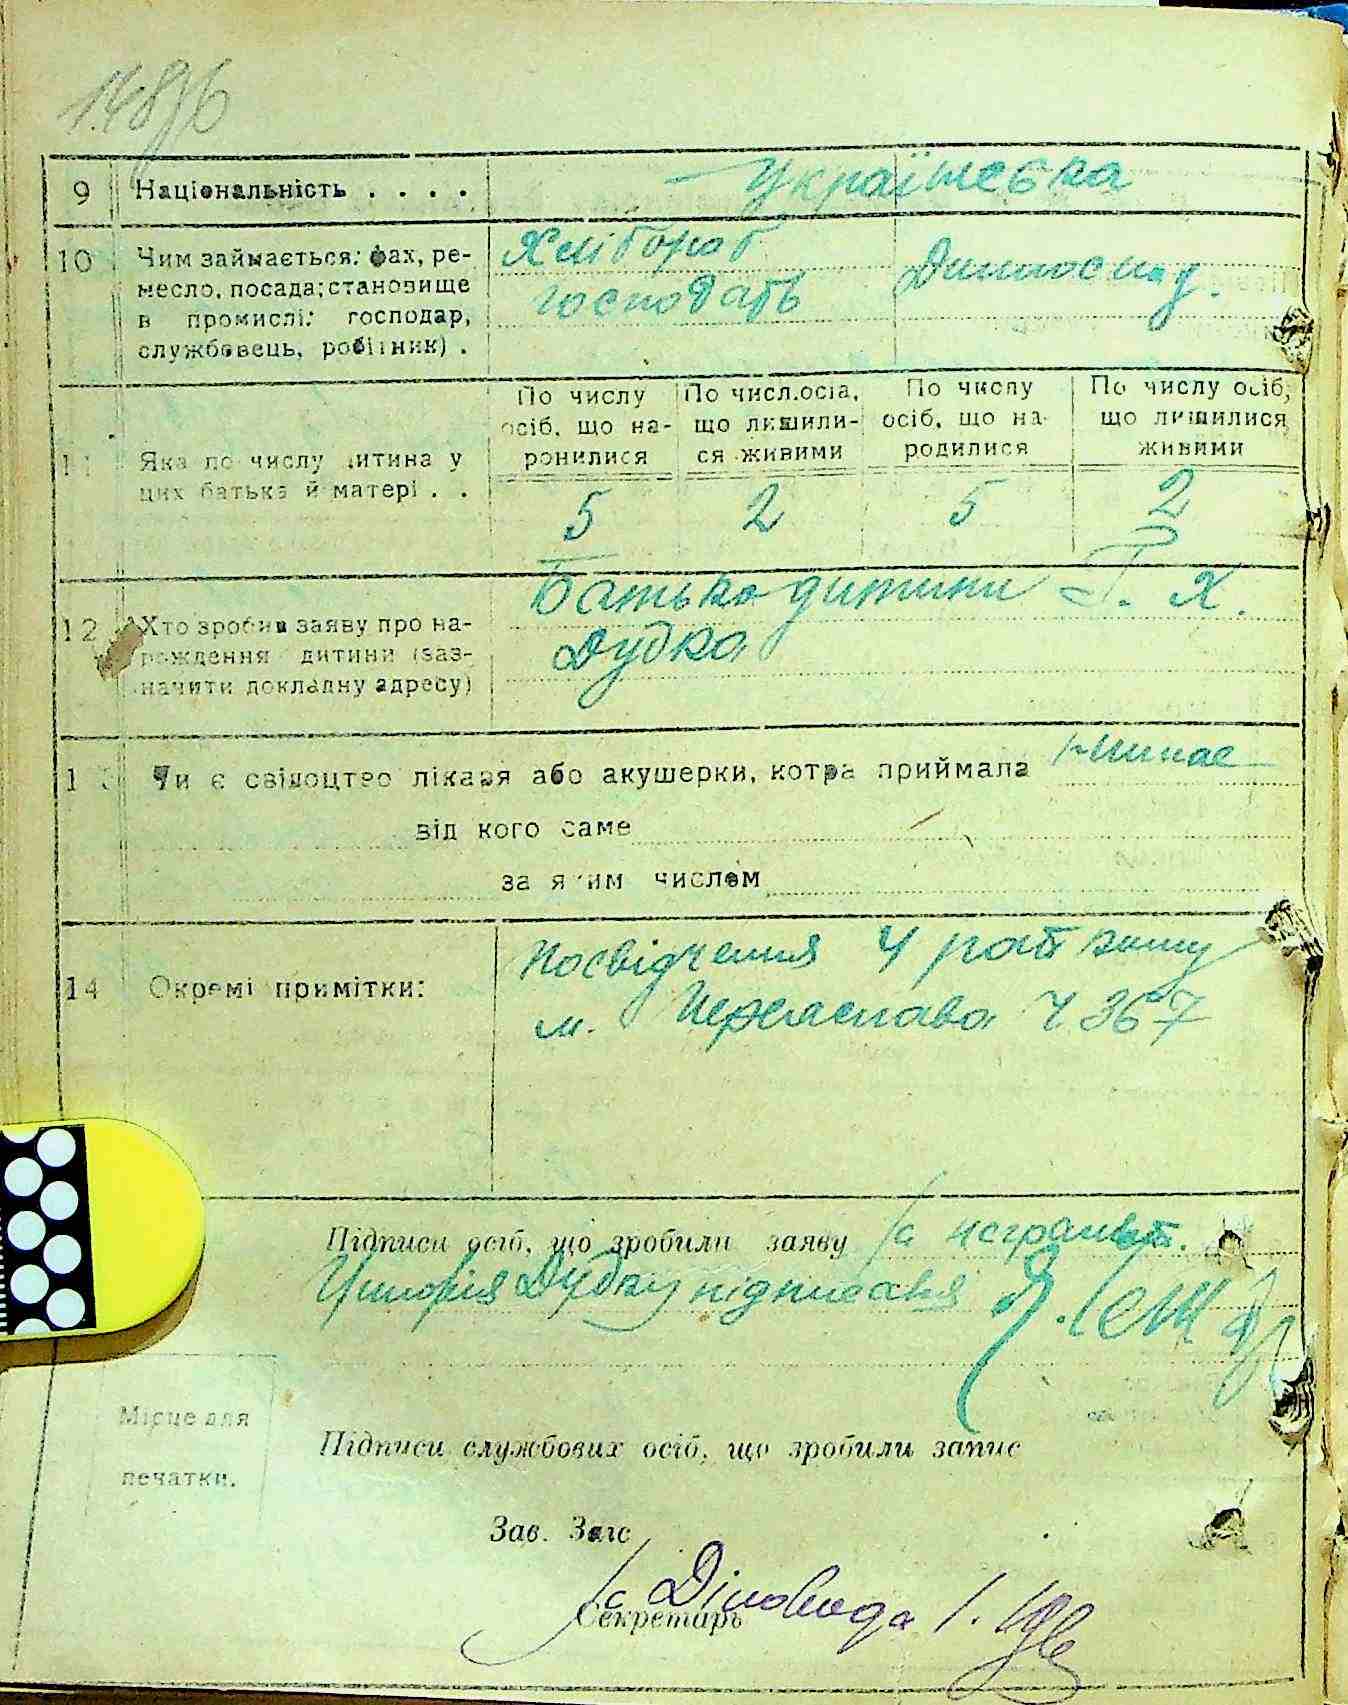 9 Національність . . . . Українська
10 Чим займається: фах, ре-
месло, посада; становище
в промислі: господар,
службовець, робітник) .
Хлібороб
господарь
Домогосподар.
По числу
осіб, що на-
ронилися
По числ.осіа,
що лишили-
ся живими
По числу
осіб, що на-
родилися
По числу осіб,
що лишилися
живими
11 Яка по числу дитина у
цих батька й матері . .
5 2 5 2
12 Хто зробив заяву про на-
рождення дитини (заз-
начити докладну адресу)
Батько дитини Г. Х.
Дудка
13 Чи є свідоцтво лікаря або акушерки, котра приймала Немає
від кого саме
за яким числом
14 Окремі примітки:
Посвідчення
м. Переяслава Ч 367
Підписи осіб, що зробили заяву За неграмот.
Дудку підписався
Підписи службових осіб, що зробили запис
Місце для
печатки.
Зав. Загс
Секретарь
За Діловода І.